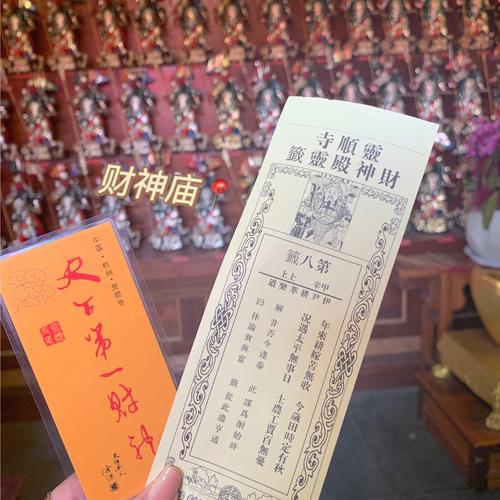 财神庙
中國·杭州·靈順寺
天下第一財神
靈順寺
財神殿靈籤
第八籤
甲辛 上上
伊尹耕莘樂道
年來耕稼苦無收 今歲田時定有秋
况遇太平無事日 士農工賈百無憂
解曰 昔否今逢泰 休論貧與富
此籤 謀爲耐始終 從此盡亨通